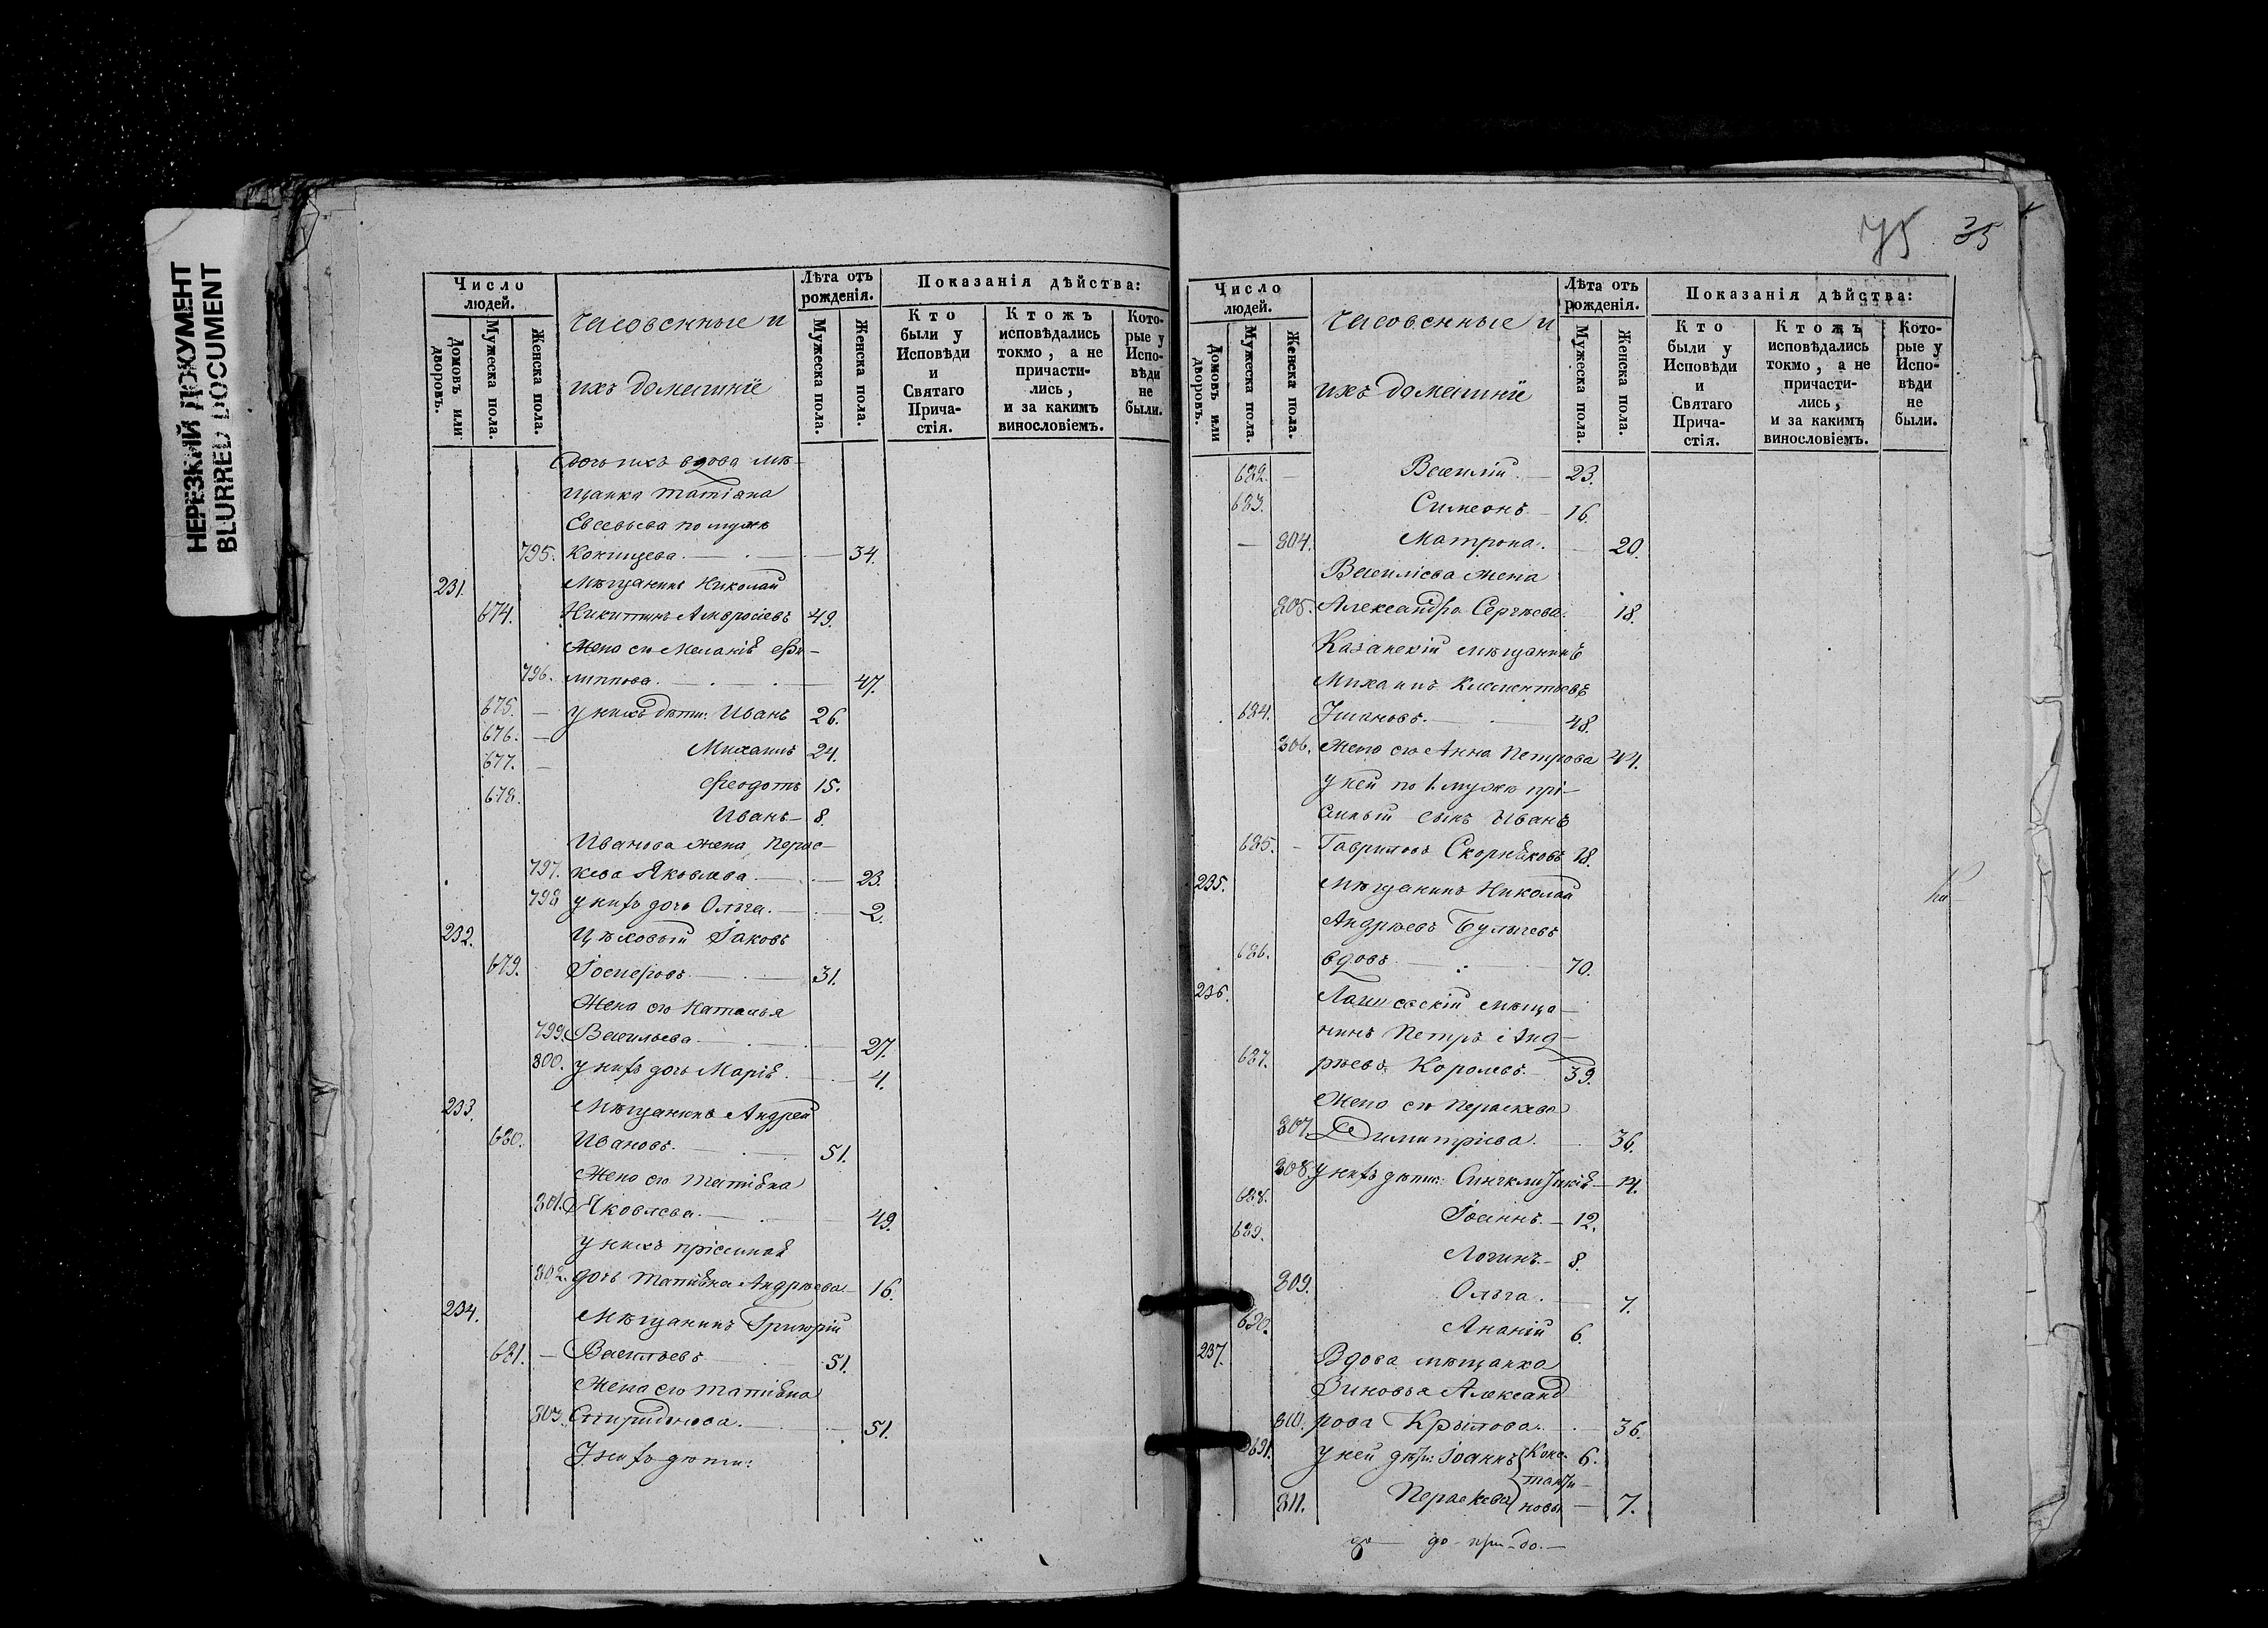 НЕРЕЗКИЙ ДОКУМЕНТ
BLURRED DOCUMENT
Число людей.
Домовъ или дворовъ.
Мужеска пола.
Женска пола.
Часовенные и
ихъ домашніе
Лѣта отъ рожденія.
Мужеска пола.
Женска пола.
Показанія дѣйства:
Кто были у Исповѣди и Святаго Прича-стія.
Ктожъ исповѣдались токмо, а не причасти-лись, и за какимъ винословіемъ.
Кото-рые у Испо-вѣди не были.
Дочь ихъ вдова мѣ-
щанка Татіана
Евсевьева по мужѣ
795. 34.
231. Мѣщанинъ Николай
674. Никитинъ Амвросіевъ 49.
Жена его Меланія Фи-
796. липпова. 47.
675. — у нихъ дѣти: Иванъ 26.
676. — Михаилъ 24.
677. — Феодотъ 15.
678. Иванъ — 8.
Иванова жена Парас-
797. кева Яковлева. 23.
798 у нихъ дочь Ольга. 2.
232. Цѣховый Іаковъ
679. 31.
Жена его Наталья
799. Васильева 27.
800. у нихъ дочь Марія. 4.
233. Мѣщанинъ Андрей
680. Ивановъ. 51.
Жена его Татіяна
801. Яковлева. 49.
у нихъ пріемная
802. дочь Татіяна Андреева 16.
234. Мѣщанинъ Григорій
681. — Васильевъ 51.
Жена его Татіяна
803. Спиридонова. 51.
У нихъ дѣти:
75 35
Число людей.
Домовъ или дворовъ.
Мужеска пола.
Женска пола.
Часовенные и
ихъ домашніе
Лѣта отъ рожденія.
Мужеска пола.
Женска пола.
Показанія дѣйства:
Кто были у Исповѣди и Святаго Прича-стія.
Ктожъ исповѣдались токмо, а не причасти-лись, и за какимъ винословіемъ.
Кото-рые у Испо-вѣди не были.
682. — Василій. — 23.
683. Симеонъ. — 16.
— 804. Матрона. — 20.
Василіева жена
805. Александра Сергѣева. 18.
Казанскій мѣщанинъ
Михаилъ Климентьевъ
684. 48.
806. Жена его Анна Петрова 44.
у ней по 1 мужѣ прі-
емный сынъ Иванъ
685. — Гавриловъ Скорняковъ 18.
235. Мѣщанинъ Николай
Андреевъ Булычевъ
686. вдовъ 70.
236. Лаишевскій мѣща-
нинъ Петръ Анд-
687. реевъ Королевъ. 39.
Жена его Параскева
807. Димитріева. 36.
808. у нихъ дѣти: Синклитикія — 14.
688. Іоаннъ. — 12.
689. Логинъ. — 8.
809. Ольга. — 7.
690. Ананій 6.
237. Вдова мѣщанка
Зиновья Александ
810. рова Крылова. 36.
691. у ней дѣти: Іоаннъ Конс- 6.
танти-
811. Параскева новы — 7.